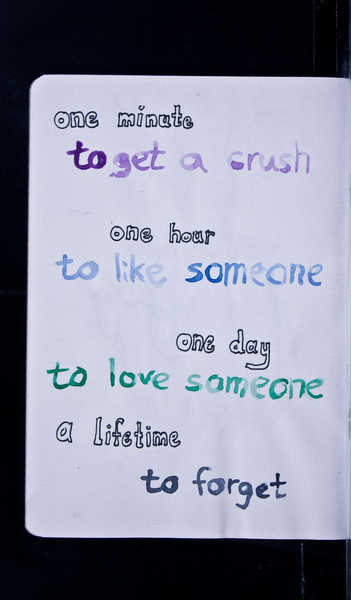 one minute
to get a crush
one hour
to like someone
one day
to love someone
a lifetime
to forget